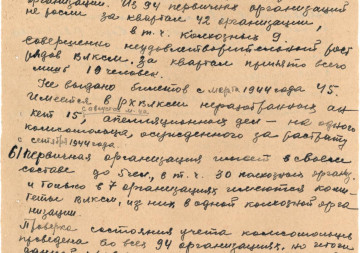 организации. Из 94 первичных организаций
не росли за квартал 42 организации,
в т.ч. колхозных 9.
совершенно неудовлетворительной рост
рядов ВЛКСМ. за квартал принято всего
лишь 19 человек.
Не выдано билетов с марта 1944 года 45.
Имеется в РКВЛКСМ неразобранных ан-
кет 15, апелляционных дел – на одного
комсомольца, осужденного за растрату
с сентября 1944 года.
б) Первичная организация имеет в своем
составе до 5 чел, в т.ч. 30 колхозных органи.
и только в 7 организациях имеются коми-
теты ВЛКСМ, из них в одной колхозной орга-
низации.
Проверка состояния учета комсомольцев
проведена во всех 94 организациях, но итоги